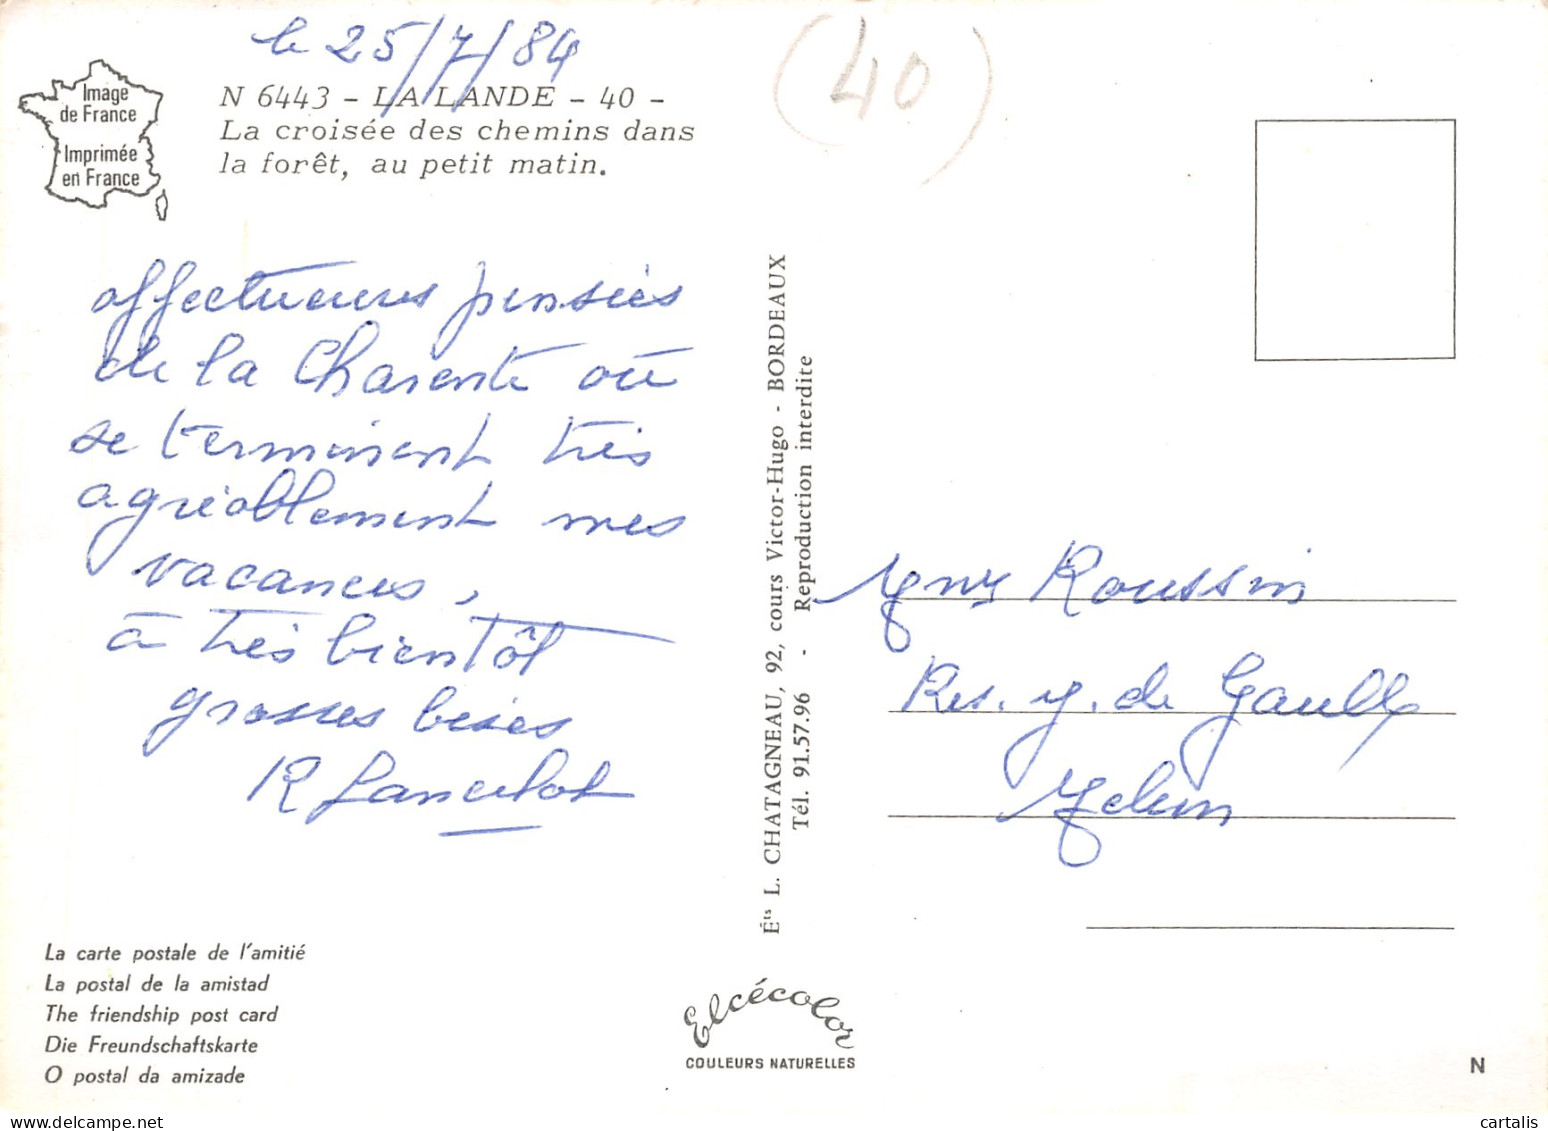 le 25/7/84
(40)
Image
de France
Imprimée
en France
N 6443 - LA LANDE - 40 -
La croisée des chemins dans
la forêt, au petit matin.
affectueuses pensées
de la Charente où
se terminent très
agréablement mes
vacances,
à très bientôt
grosses bises
R Lancelot
Éts L. CHATAGNEAU, 92, cours Victor-Hugo - BORDEAUX
Tél. 91.57.96 - Reproduction interdite
Roussin
Res. g. de Gaulle
Melun
La carte postale de l'amitié
La postal de la amistad
The friendship post card
Die Freundschaftskarte
O postal da amizade
Elcécolor
COULEURS NATURELLES
N
cartalis